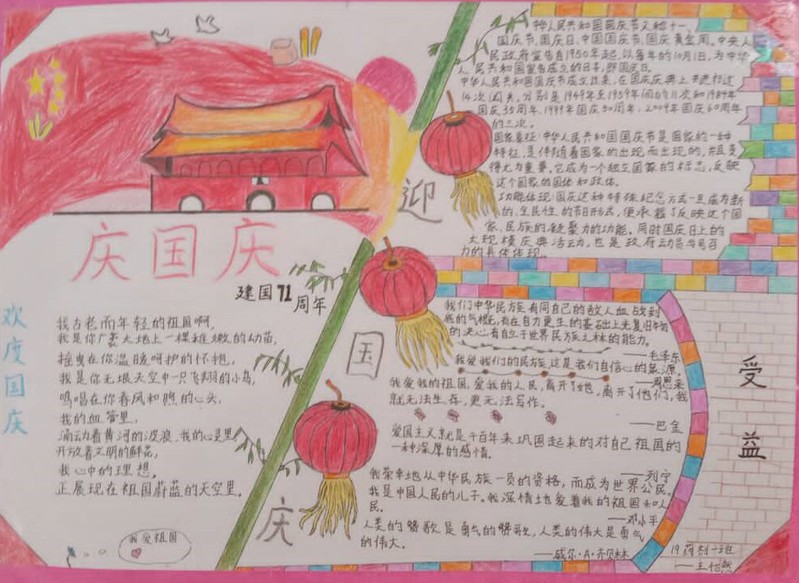 庆国庆
建国71周年
欢度国庆
我古老而年轻的祖国啊,
我是你广袤大地上一棵稚嫩的幼苗,
摇曳在你温暖呵护的怀抱,
我是你无垠天空中一只飞翔的小鸟,
鸣唱在你春风和煦的心头,
我的血管里,
涌动着黄河的波浪,我的心是里
开放着文明的鲜花,
我心中的理想,
正展现在祖国蔚蓝的天空里。
我爱祖国
迎
国
庆
中华人民共和国国庆节又称十一、
国庆节、国庆日、中国国庆节、国庆黄金周。中央人
民政府宣告自1950年起,以每年的10月1日,为中华
人民共和国宣告成立的日子,即国庆日。
中华人民共和国国庆节成立以来,在国庆庆典上共进行过
14次阅兵。分别是1949年至1959年间的11次和1984年
国庆35周年、1999年国庆50周年、2009年国庆60周年
的三次。
国家象征:中华人民共和国国庆节是国家的一种
特征,是伴随着国家的出现而出现的,并且变
得尤为重要。它成为一个独立国家的标志,反映
这个国家的国体和政体。
功能体现:国庆这种特殊纪念方式一旦成为新
的、全民性的节日形式,便承载了反映这个国
家、民族的凝聚力的功能。同时国庆日上的
大规模庆典活动,也是政府动员与号召
力的具体体现。
我们中华民族有同自己的敌人血战到
我的气概,有在自力更生的基础上光复旧物
的决心,有自立于世界民族之林的能力。
——毛泽东
我爱我们的民族,这是我们自信心的泉源。
——周恩来
我爱我的祖国,爱我的人民,离开了她,离开了他们,我
就无法生存,更无法写作。
——巴金
爱国主义就是千百年来巩固起来的对自己祖国的
一种深厚的感情。
——列宁
我荣幸地从中华民族一员的资格,而成为世界公民。
我是中国人民的儿子。我深情地爱着我的祖国和人
民。
——邓小平
人类的骄歌是勇气的骄歌,人类的伟大是勇气
的伟大。
——威尔·A·齐贝林
受益
19药剂一班